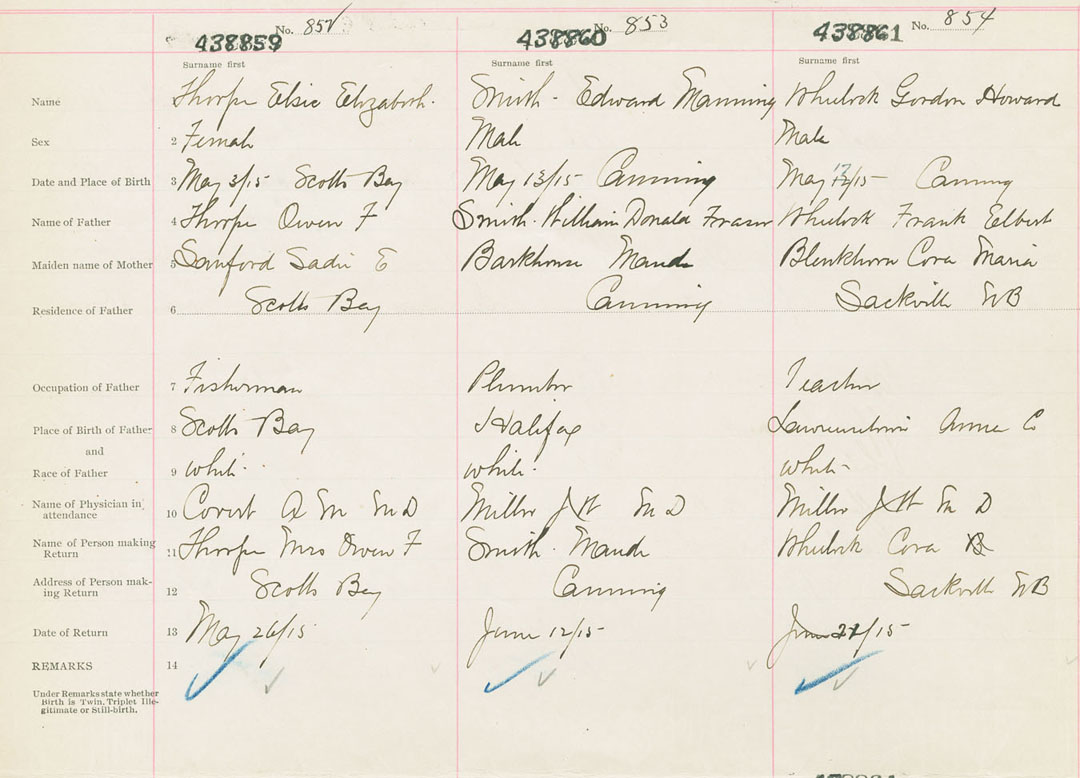 No. 852 No. 853 No. 854
438859 438860 438861
Surname first Surname first Surname first
Name Thorpe Elsie Elizabeth. Smith - Edward Manning Wheelock Gordon Howard
Sex 2 Female Male Male
Date and Place of Birth 3 May 3/15 Scotts Bay May 13/15 Canning May /15 Canning
Name of Father 4 Thorpe Owen F Smith. William Donald Fraser Wheelock Frank Elbert
Maiden name of Mother 5 Sanford Sadie E Barkhouse Maude Blenkhorn Cora Maria
Residence of Father 6 Scotts Bay Canning Sackville NB
Occupation of Father 7 Fisherman Plumber Teacher
Place of Birth of Father 8 Scotts Bay Halifax Lawrencetown Anna C
and
Race of Father 9 white. white. white
Name of Physician in attendance 10 Covert A M MD Miller J H M D Miller J H M D
Name of Person making Return 11 Thorpe Mrs Owen F Smith. Maude Wheelock Cora
Address of Person making Return 12 Scotts Bay Canning Sackville NB
Date of Return 13 May 26/15 June 12/15 June /15
REMARKS 14
Under Remarks state whether
Birth is Twin, Triplet Ille-
gitimate or Still-birth.